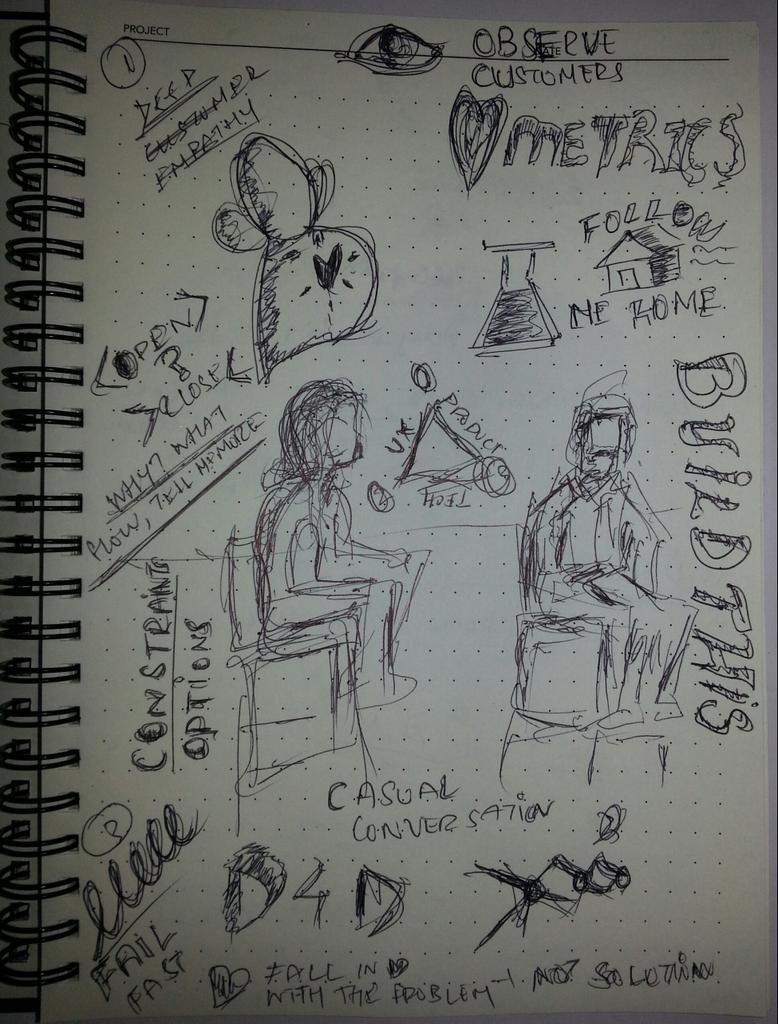 PROJECT
DATE
OBSERVE
CUSTOMERS
1
DEEP
CUSTOMER
EMPATHY
METRICS
FOLLOW
ME HOME
<OPEN>
&
>CLOSE<
WHY? WHAT
HOW, TELL ME MORE
UX
PRODUCT
TECH
BUILD THIS
CONSTRAINTS
OPTIONS
CASUAL
CONVERSATION
3
2
D4D
FAIL
FAST
FALL IN
WITH THE PROBLEM - NOT SOLUTION